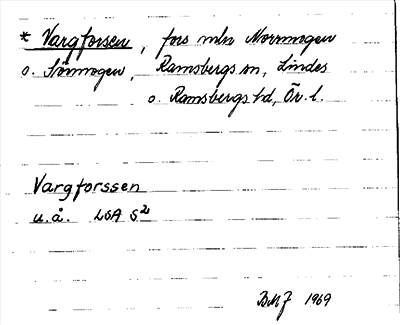 * Vargforsen, fors mln Norrmogen
o. Sörmogen, Ramsbergs sn, Lindes
o. Ramsbergs hd, Ör. l.
Vargforssen
u.å. LSA S²
BMJ 1969